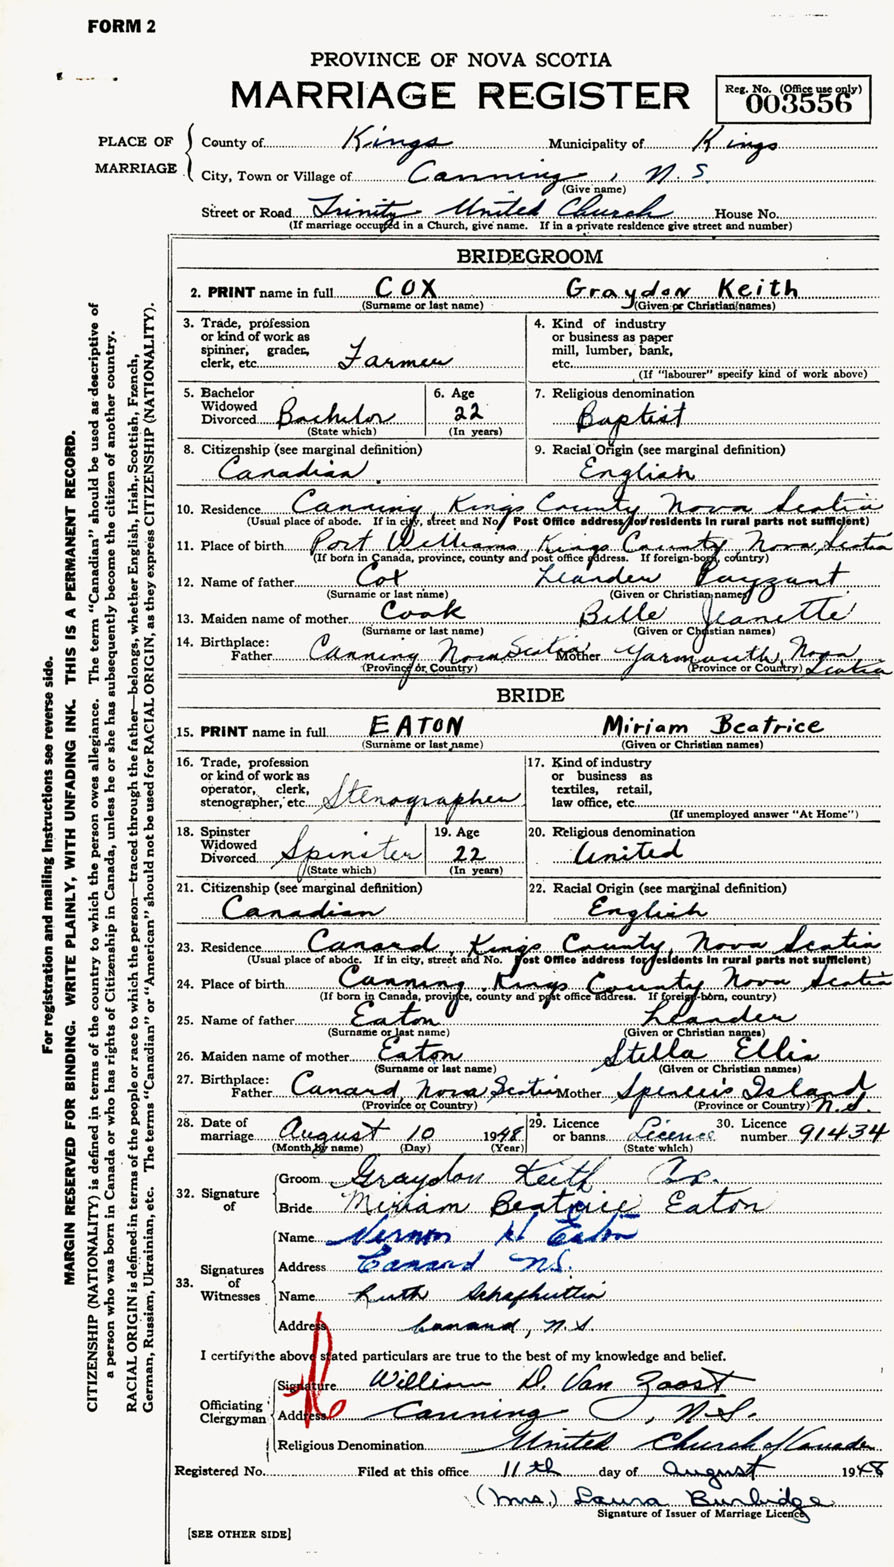 FORM 2
PROVINCE OF NOVA SCOTIA
MARRIAGE REGISTER
Reg. No. (Office use only)
003556
PLACE OF MARRIAGE
County of Kings Municipality of Kings
City, Town or Village of Canning, N.S.
(Give name)
Street or Road Trinity United Church House No.
(If marriage occupied in a Church, give name. If in a private residence give street and number)
BRIDEGROOM
2. PRINT name in full COX Graydon Keith
(Surname or last name) (Given or Christian names)
3. Trade, profession or kind of work as spinner, grader, clerk, etc. Farmer
4. Kind of industry or business as paper mill, lumber, bank, etc.
(If "labourer" specify kind of work above)
5. Bachelor Widowed Divorced Bachelor
(State which)
6. Age 22
(In years)
7. Religious denomination
Baptist
8. Citizenship (see marginal definition)
Canadian
9. Racial Origin (see marginal definition)
English
10. Residence Canning, Kings County Nova Scotia
(Usual place of abode. If in city, street and No. Post Office address for residents in rural parts not sufficient)
11. Place of birth Port Williams, Kings County Nova Scotia
(If born in Canada, province, county and post office address. If foreign-born, country)
12. Name of father Cox Leander Payzant
(Surname or last name) (Given or Christian names)
13. Maiden name of mother Cook Belle Jeanette
(Surname or last name) (Given or Christian names)
14. Birthplace:
Father Canning Nova Scotia Mother Yarmouth, Nova Scotia
(Province or Country) (Province or Country)
BRIDE
15. PRINT name in full EATON Miriam Beatrice
(Surname or last name) (Given or Christian names)
16. Trade, profession or kind of work as operator, clerk, stenographer, etc. Stenographer
17. Kind of industry or business as textiles, retail, law office, etc.
(If unemployed answer "At Home")
18. Spinster Widowed Divorced Spinster
(State which)
19. Age 22
(In years)
20. Religious denomination
United
21. Citizenship (see marginal definition)
Canadian
22. Racial Origin (see marginal definition)
English
23. Residence Canard, Kings County, Nova Scotia
(Usual place of abode. If in city, street and No. Post Office address for residents in rural parts not sufficient)
24. Place of birth Canning, Kings County Nova Scotia
(If born in Canada, province, county and post office address. If foreign-born, country)
25. Name of father Eaton Leander
(Surname or last name) (Given or Christian names)
26. Maiden name of mother Eaton Stella Ellis
(Surname or last name) (Given or Christian names)
27. Birthplace:
Father Canard, Nova Scotia Mother Spencer's Island N.S.
(Province or Country) (Province or Country)
28. Date of marriage August 10 1948
(Month by name) (Day) (Year)
29. Licence or banns Licence
(State which)
30. Licence number 91434
32. Signature of
Groom Graydon Keith Cox.
Bride Miriam Beatrice Eaton
33. Signatures of Witnesses
Name Vernon H Eaton
Address Canard N.S.
Name Ruth
Address Canard, N.S.
I certify the above stated particulars are true to the best of my knowledge and belief.
Officiating Clergyman
Signature William D. Van Zoost
Address Canning, N.S.
Religious Denomination United Church of Canada
Registered No. Filed at this office 11th day of August 1948
(Mrs.) Laura Burbidge
Signature of Issuer of Marriage Licence
[SEE OTHER SIDE]
For registration and mailing instructions see reverse side.
MARGIN RESERVED FOR BINDING. WRITE PLAINLY, WITH UNFADING INK. THIS IS A PERMANENT RECORD.
CITIZENSHIP (NATIONALITY) is defined in terms of the country to which the person owes allegiance. The term "Canadian" should be used as descriptive of
a person who was born in Canada or who has rights of Citizenship in Canada, unless he or she has subsequently become the citizen of another country.
RACIAL ORIGIN is defined in terms of the people or race to which the person—traced through the father—belongs, whether English, Irish, Scottish, French,
German, Russian, Ukrainian, etc. The terms "Canadian" or "American" should not be used for RACIAL ORIGIN, as they express CITIZENSHIP (NATIONALITY).